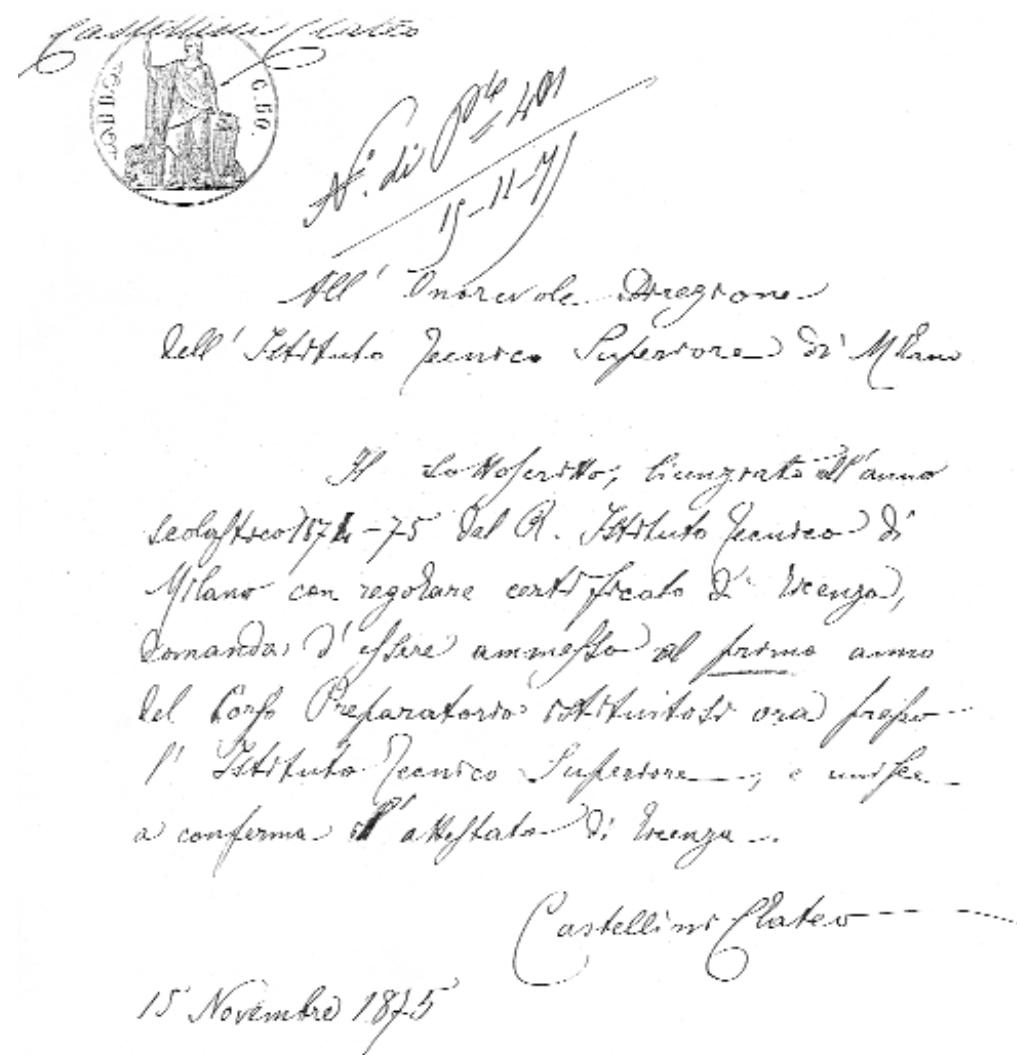 Castellini Clateo
C. 50.
N.° di P.lo = 401
15-11-75
All' Onorevole Direzione
dell' Istituto Tecnico Superiore di Milano
Il sottoscritto, licenziato all' anno
scolastico 1874-75 dal R. Istituto Tecnico di
Milano con regolare certificato di licenza,
domanda d' essere ammesso al primo anno
del Corso Preparatorio istituitosi ora presso
l' Istituto Tecnico Superiore, e unisce
a conferma l' attestato di licenza.
Castellini Clateo
15 Novembre 1875